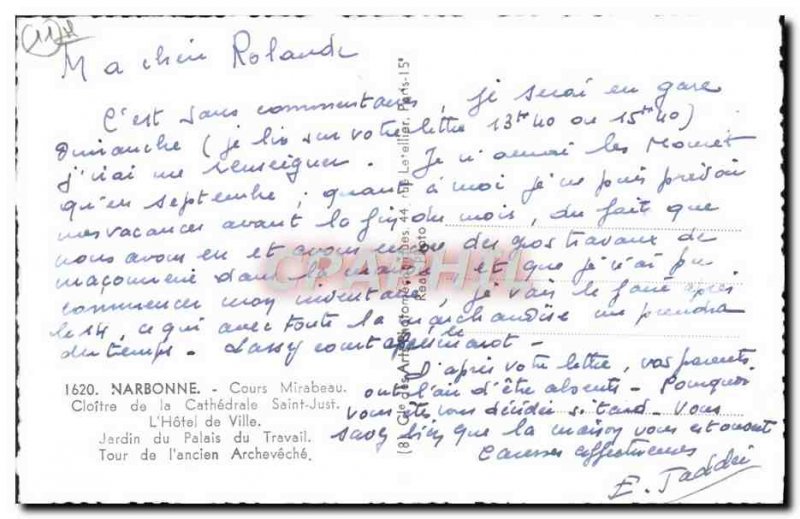 (1172)
Ma chère Rolande
C'est sans commentaires, je serai en gare
Dimanche (je lis sur votre lettre 13h40 ou 15h40)
j'irai me renseigner. Je n'aurai les
qu'en septembre ; quant à moi je ne puis prévoir
mes vacances avant la fin du mois, du fait que
nous avons eu et avons encore des gros travaux de
maçonnerie dans le et que je n'ai pu
commencer mon inventaire, je vais le faire après
le 14, ce qui avec toute la marchandise me prendra
du temps -
D'après votre lettre, vos parents
ont l'air d'être absents - Pourquoi
vous êtes vous décidée si tard - Vous
savez bien que la maison vous est ouverte
affectueuses
E. Taddei
1620. NARBONNE. - Cours Mirabeau.
Cloître de la Cathédrale Saint-Just.
L'Hôtel de Ville.
Jardin du Palais du Travail.
Tour de l'ancien Archevêché.
Cie des Arts 44, rue Letellier, Paris-15e
CPAPHIL